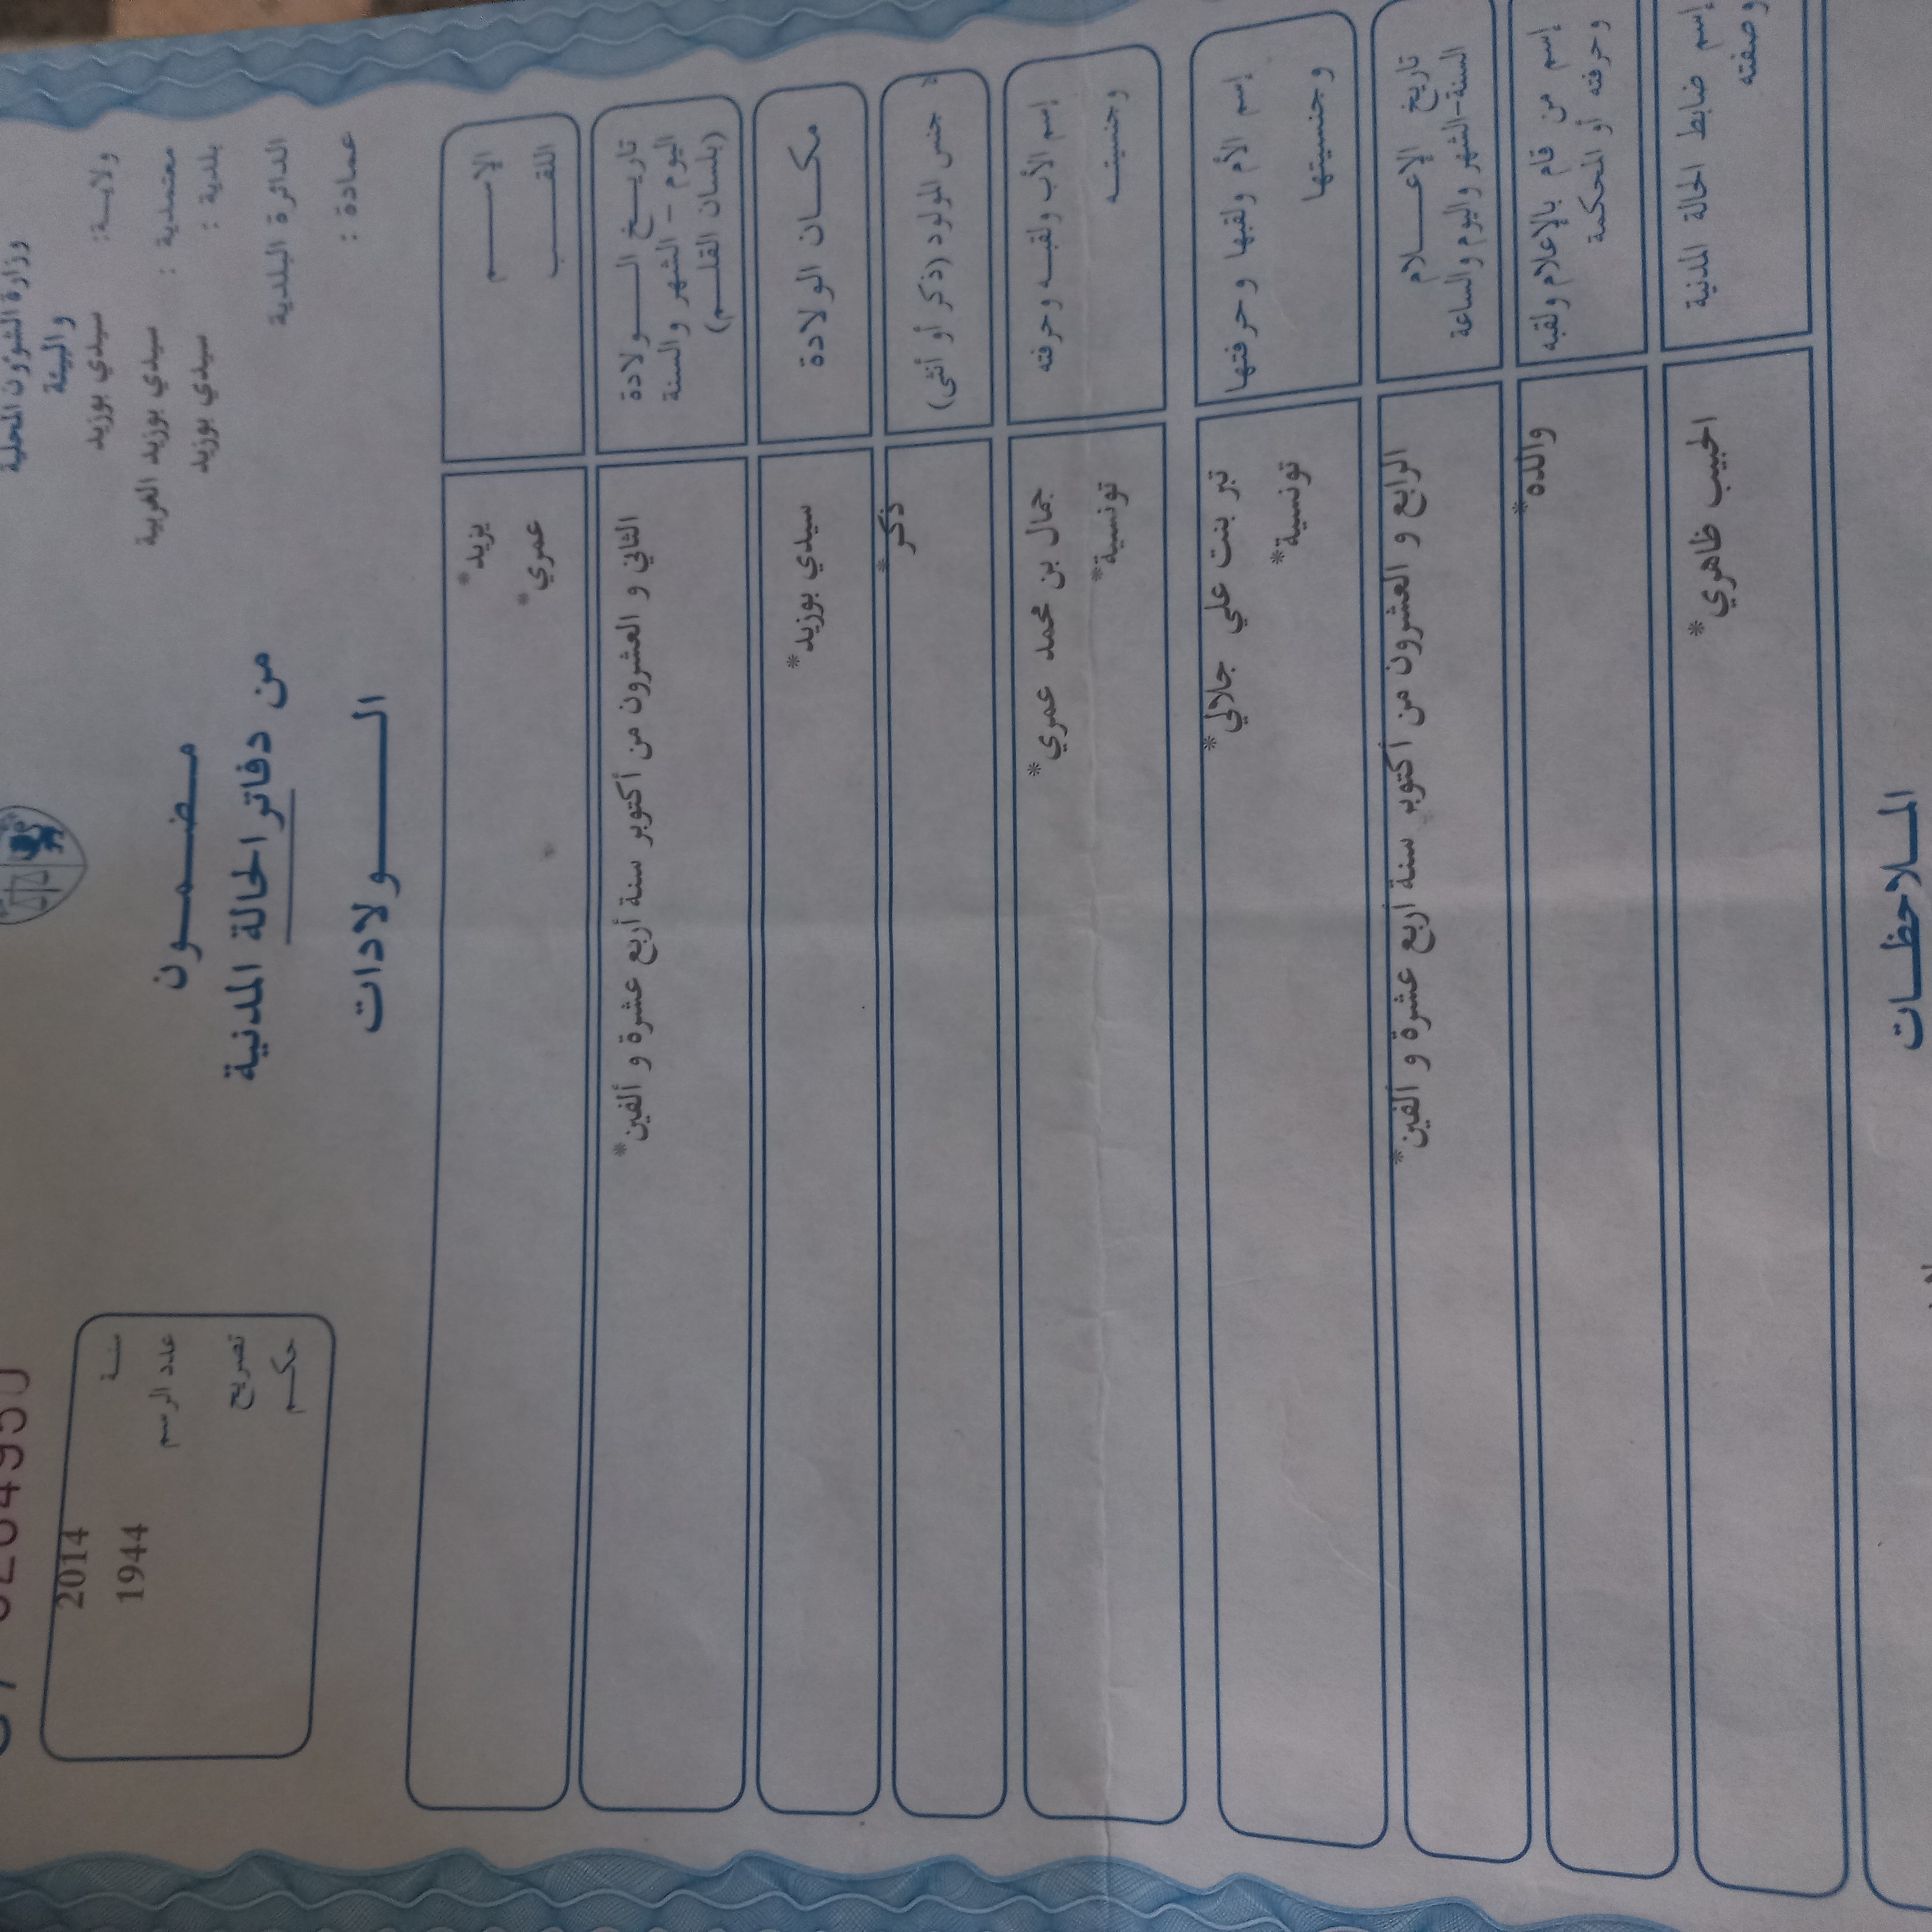 وزارة الشؤون المحلية
والبيئة
ولايـــة: سيدي بوزيد
معتمدية : سيدي بوزيد الغربية
بلدية : سيدي بوزيد
الدائرة البلدية
عمادة :
مـضـمــون
من دفاتر الحالة المدنية
الــولادات
سنــة 2014
عدد الرسم 1944
تصريح
حكــم
الإســــم يزيد*
اللقــــب عمري*
تاريــخ الــــولادة
اليوم - الشهر والسنة
(بلسان القلــم)
الثاني و العشرون من أكتوبر سنة أربع عشرة و ألفين*
مكــان الولادة سيدي بوزيد*
جنس المولود (ذكر أو أنثى) ذكر*
إسم الأب ولقبـه وحرفته جمال بن محمد عمري*
وجنسيتــه تونسية*
إسم الأم ولقبها وحرفتها تبر بنت علي جلالي*
وجنسيتها تونسية*
تاريخ الإعـــلام
السنة-الشهر واليوم والساعة
الرابع و العشرون من أكتوبر سنة أربع عشرة و ألفين*
إسم من قام بالإعلام ولقبه
وحرفته أو المحكمة
والده*
إسم ضابط الحالة المدنية
وصفته
الحبيب ظاهري*
المـلاحظـات